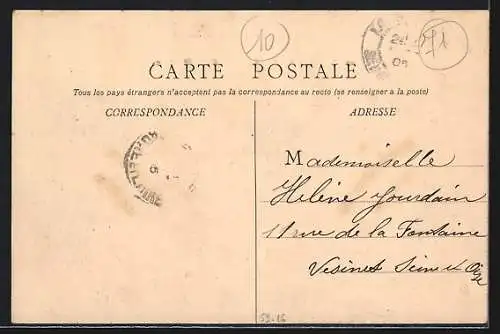 10
71
24
05
CARTE POSTALE
Tous les pays étrangers n'acceptent pas la correspondance au recto (se renseigner à la poste)
CORRESPONDANCE
ADRESSE
Mademoiselle
Helène Jourdain
11 rue de la Fontaine
Vesinet Seine et Oise
59-16